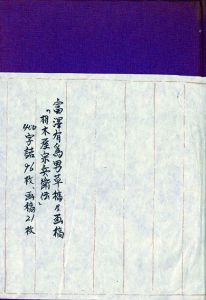 富澤有為男草稿及画稿
"材木屋宗兵衛伝
400字詰96枚、画稿21枚